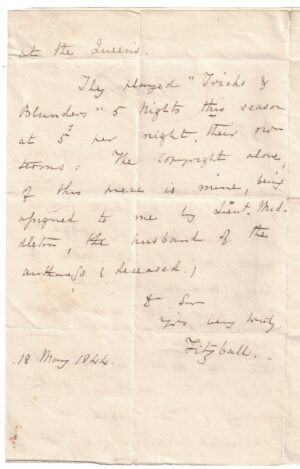 at the Queens.
They played "Tricks &
Blunders" 5 Nights this season
at 5s per night, their own
terms: The copyright above,
of this piece is mine, being
assigned to me by Lieut. Mid-
dleton, the husband of the
authoress (deceased.)
& Sir
yrs very truly,
Fitzball.
18 May 1844.